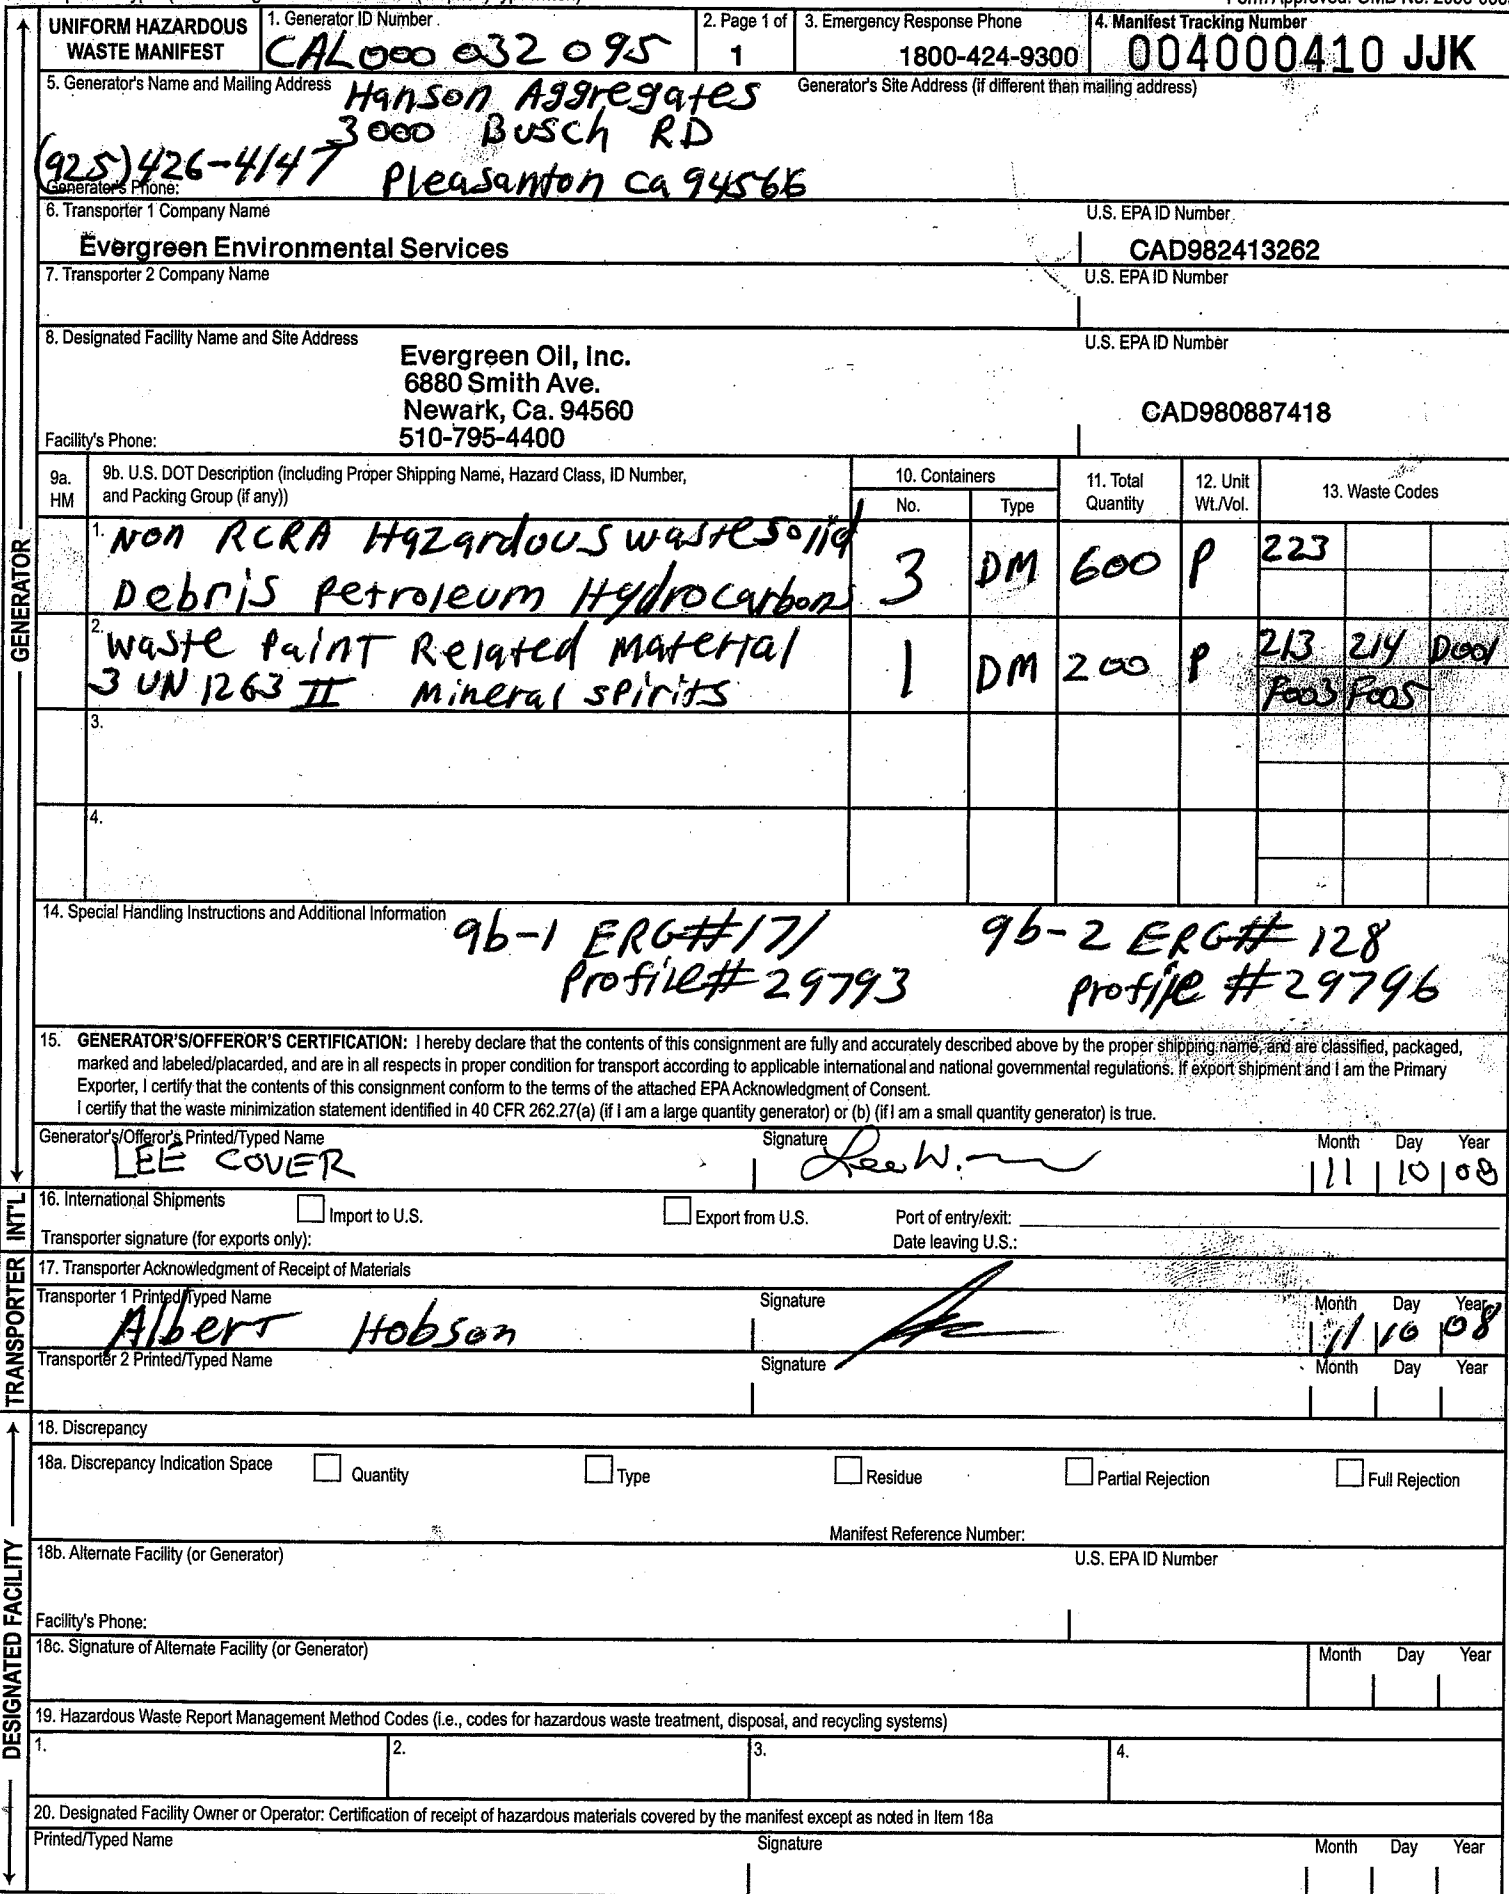 UNIFORM HAZARDOUS WASTE MANIFEST
1. Generator ID Number
CAL000 032 095
2. Page 1 of
1
3. Emergency Response Phone
1800-424-9300
4. Manifest Tracking Number
004000410 JJK
5. Generator's Name and Mailing Address
Hanson Aggregates
3000 Busch RD
Pleasanton ca 94566
Generator's Site Address (if different than mailing address)
(925) 426-4147
Generator's Phone:
6. Transporter 1 Company Name
U.S. EPA ID Number
Evergreen Environmental Services
CAD982413262
7. Transporter 2 Company Name
U.S. EPA ID Number
8. Designated Facility Name and Site Address
U.S. EPA ID Number
Evergreen Oil, Inc.
6880 Smith Ave.
Newark, Ca. 94560
CAD980887418
Facility's Phone:
510-795-4400
9a. HM
9b. U.S. DOT Description (including Proper Shipping Name, Hazard Class, ID Number, and Packing Group (if any))
10. Containers
No.
Type
11. Total Quantity
12. Unit Wt./Vol.
13. Waste Codes
1. Non RCRA Hazardous waste solid
Debris Petroleum Hydrocarbons
3 DM 600 P 223
2. Waste Paint Related Material
3 UN 1263 II Mineral spirits
1 DM 200 P 213 214 D001
F003 F005
3.
4.
14. Special Handling Instructions and Additional Information
9b-1 ERG#171
Profile# 29793
9b-2 ERG# 128
Profile #29796
15. GENERATOR'S/OFFEROR'S CERTIFICATION: I hereby declare that the contents of this consignment are fully and accurately described above by the proper shipping name, and are classified, packaged,
marked and labeled/placarded, and are in all respects in proper condition for transport according to applicable international and national governmental regulations. If export shipment and I am the Primary
Exporter, I certify that the contents of this consignment conform to the terms of the attached EPA Acknowledgment of Consent.
I certify that the waste minimization statement identified in 40 CFR 262.27(a) (if I am a large quantity generator) or (b) (if I am a small quantity generator) is true.
Generator's/Offeror's Printed/Typed Name
Signature
Month Day Year
LEE COVER
Lee W.
11 10 08
16. International Shipments
Import to U.S.
Export from U.S.
Port of entry/exit:
Transporter signature (for exports only):
Date leaving U.S.:
17. Transporter Acknowledgment of Receipt of Materials
Transporter 1 Printed/Typed Name
Signature
Month Day Year
Albert Hobson
11 10 08
Transporter 2 Printed/Typed Name
Signature
Month Day Year
18. Discrepancy
18a. Discrepancy Indication Space
Quantity
Type
Residue
Partial Rejection
Full Rejection
Manifest Reference Number:
18b. Alternate Facility (or Generator)
U.S. EPA ID Number
Facility's Phone:
18c. Signature of Alternate Facility (or Generator)
Month Day Year
19. Hazardous Waste Report Management Method Codes (i.e., codes for hazardous waste treatment, disposal, and recycling systems)
1.
2.
3.
4.
20. Designated Facility Owner or Operator: Certification of receipt of hazardous materials covered by the manifest except as noted in Item 18a
Printed/Typed Name
Signature
Month Day Year
GENERATOR
INT'L
TRANSPORTER
DESIGNATED FACILITY